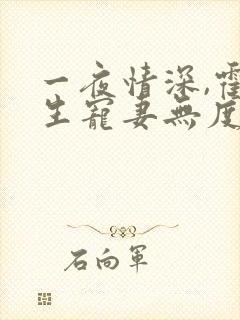 一夜情深,霍
生寵妻無度
石向軍